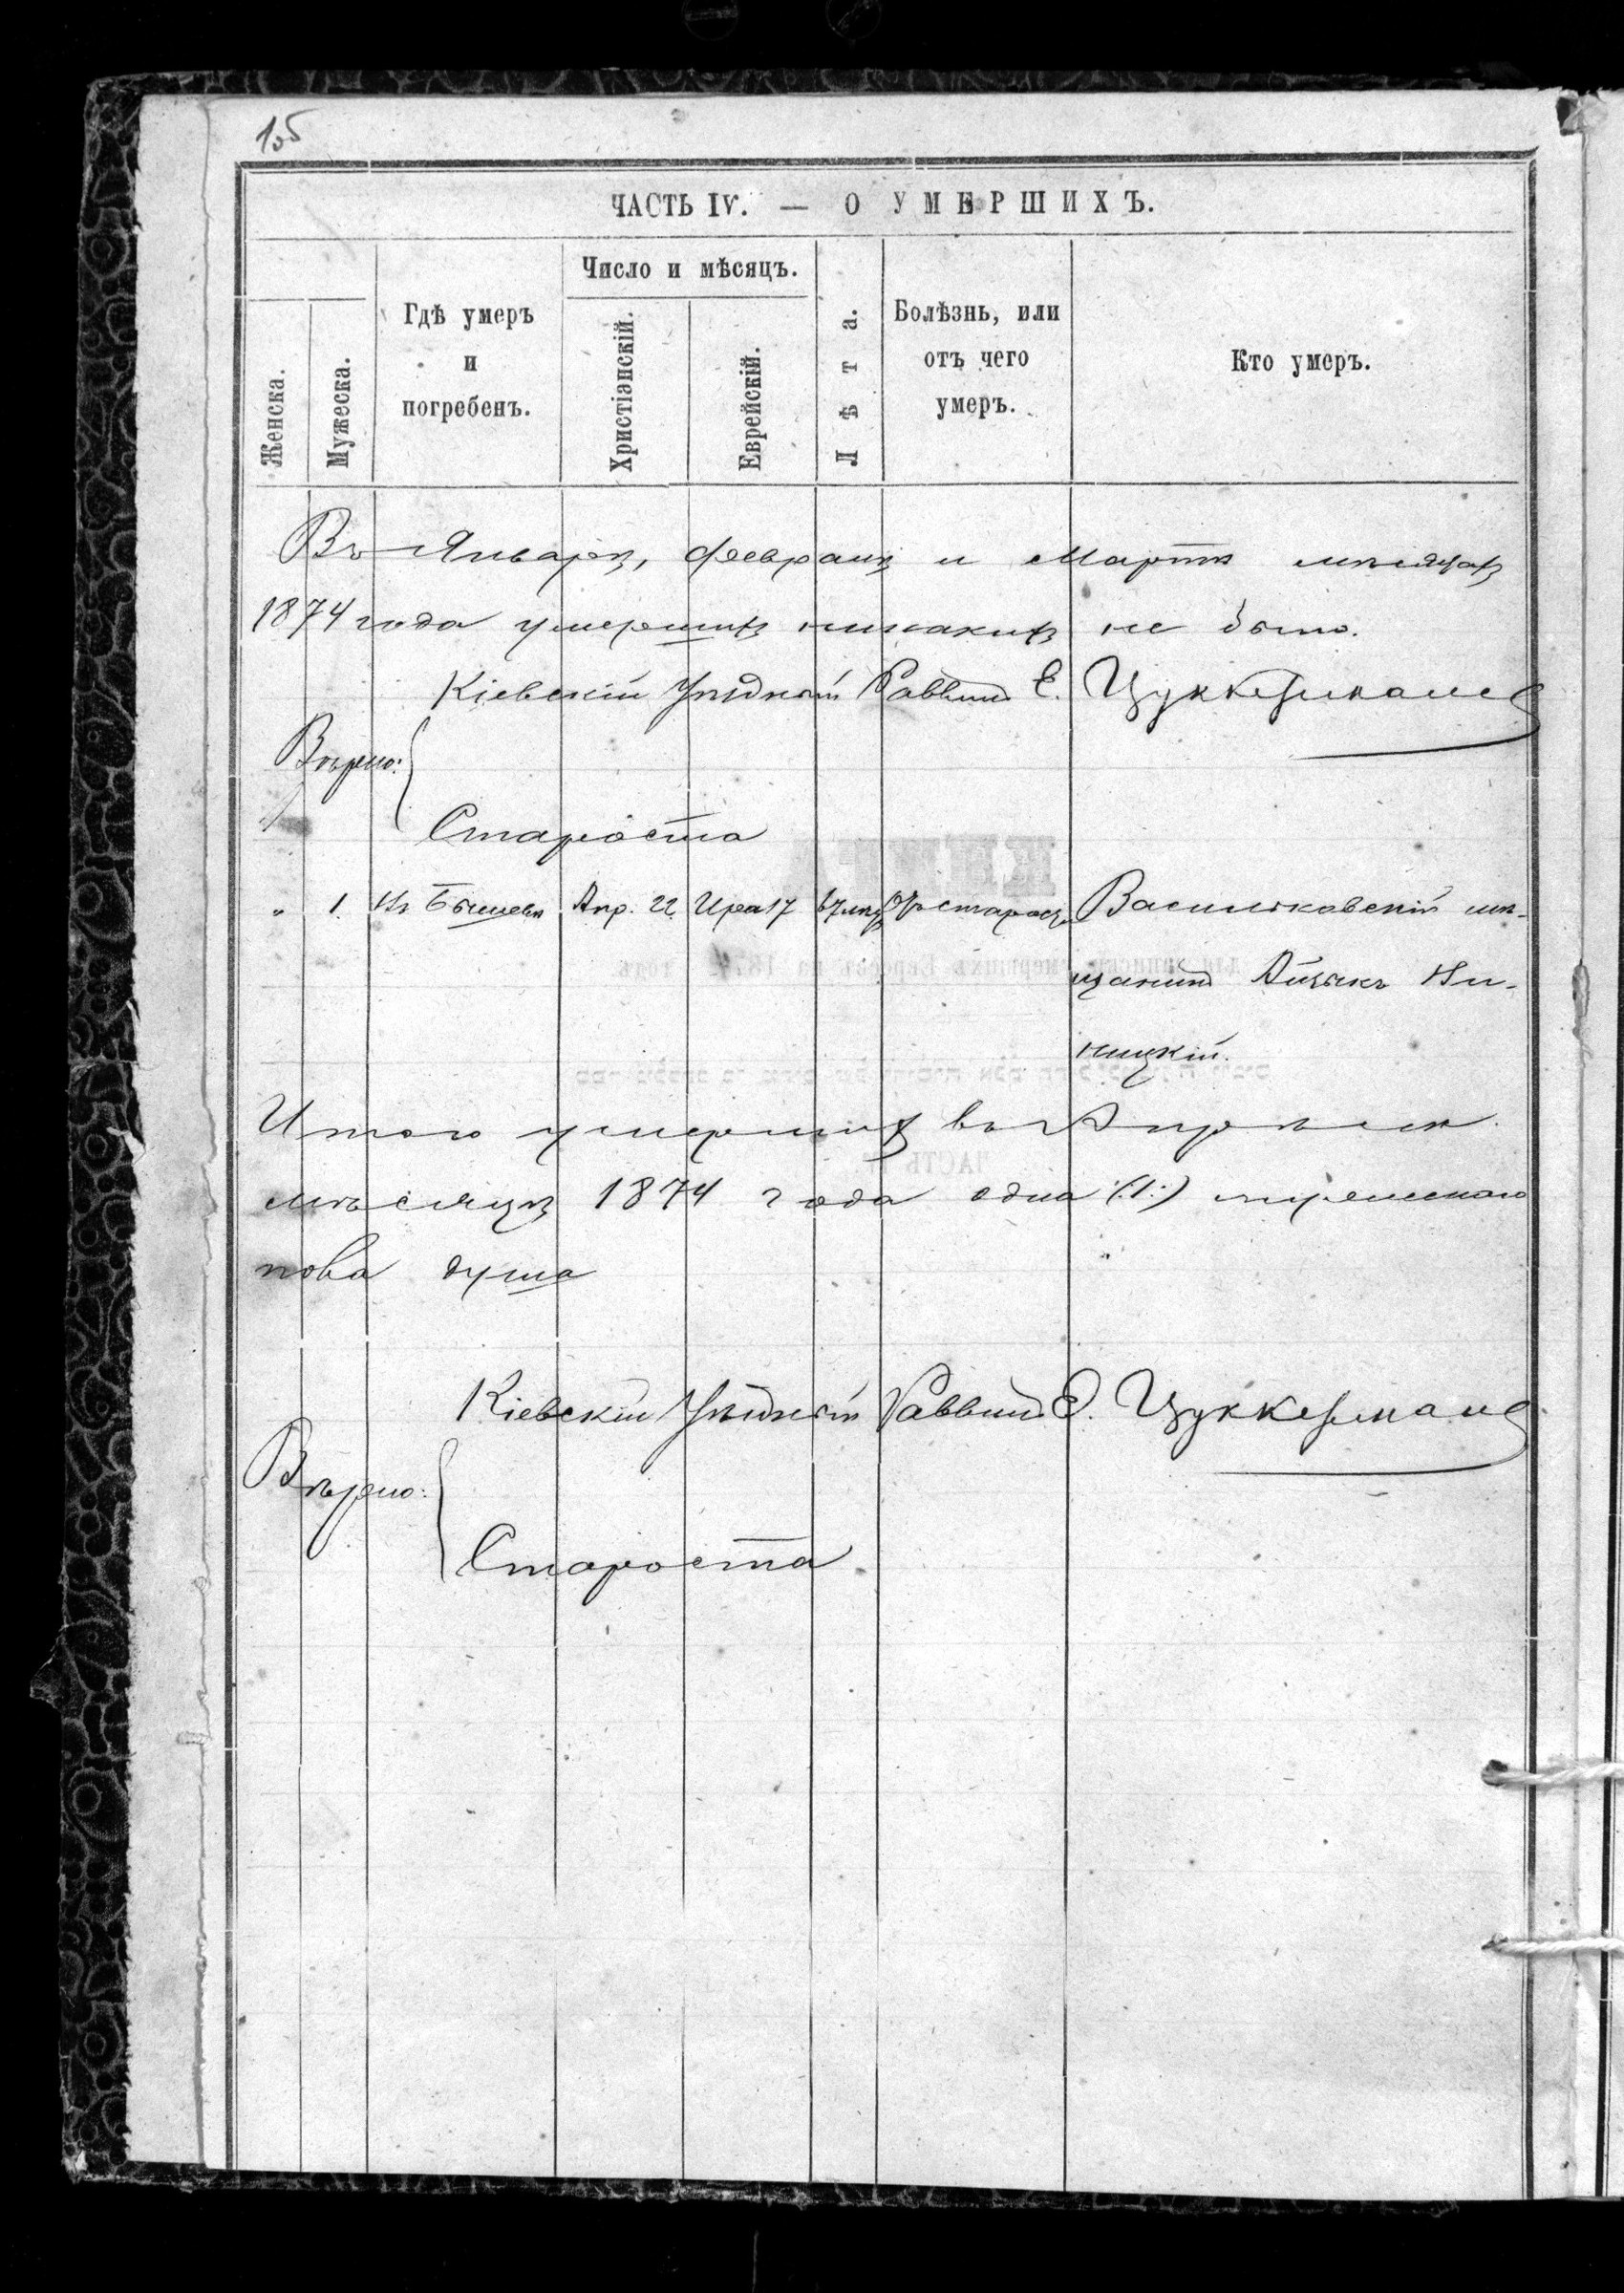 105
ЧАСТЬ IV. — О УМЕРШИХЪ.
Женска.
Мужеска.
Гдѣ умеръ
и
погребенъ.
Число и мѣсяцъ.
Христіанскій.
Еврейскій.
Лѣта.
Болѣзнь, или
отъ чего
умеръ.
Кто умеръ.
Въ Январѣ, Февралѣ и Мартѣ мѣсяцахъ
1874 года умершихъ никакихъ не было.
Кіевскій Уѣздный Раввинъ Е. Цуккерманъ
Вѣрно:
Староста
" 1. Въ Бышевѣ Апр. 22. Ира 17 67 лѣтъ Отъ старости Васильковскій мѣ-
щанинъ Айзыкъ
ницкій.
Итого умершихъ въ Апрѣлѣ
мѣсяцѣ 1874 года одна (:1:) мужескаго
пола душа
Кіевскій Уѣздный Раввинъ Е. Цуккерманъ
Вѣрно:
Староста